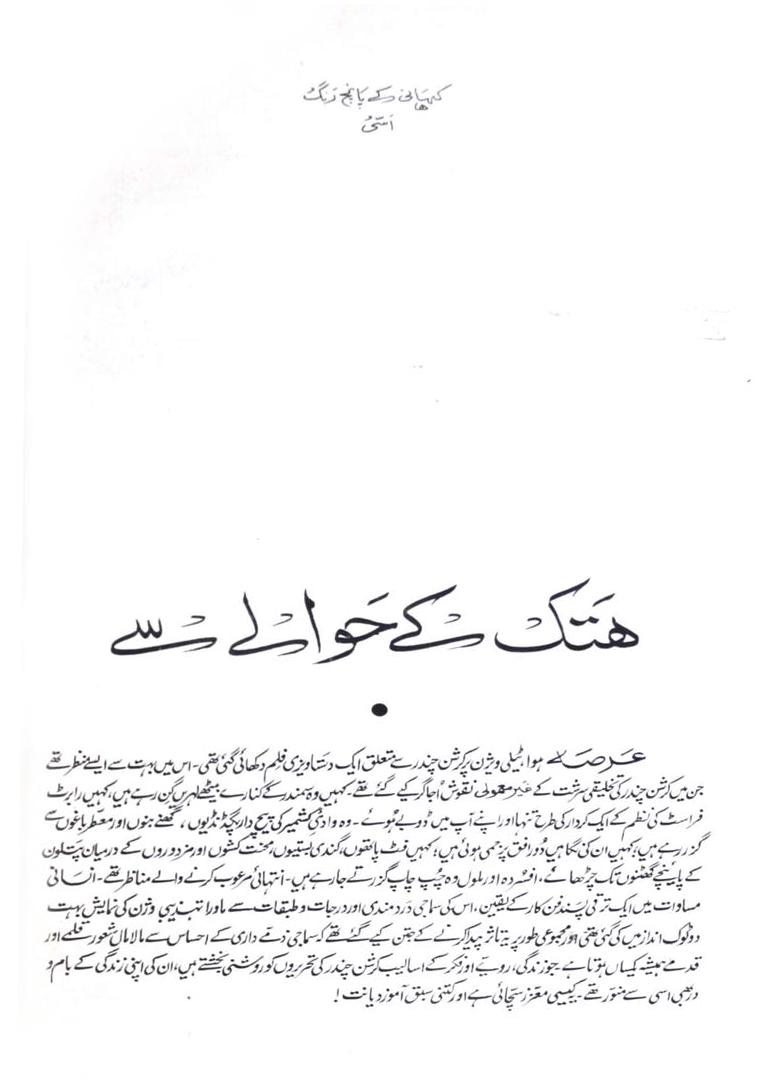 کہانی کے پانچ رنگ
اسّی
ہتک کے حوالے سے
عرصہ ہوا، ٹیلی ویژن پر کرشن چندر سے متعلق ایک دستاویزی فلم دکھائی گئی تھی۔ اس میں بہت سے ایسے منظر تھے
جن میں کرشن چندر کی تخلیقی سرشت کے غیر معمولی نقوش اُجاگر کیے گئے تھے۔ کہیں وہ سمندر کے کنارے بیٹھے لہریں گن رہے ہیں، کہیں رابرٹ
فراسٹ کی نظم کے ایک کردار کی طرح تنہا اور اپنے آپ میں ڈوبے ہُوئے۔ وہ وادیٔ کشمیر کی پیچ دار پگڈنڈیوں، گھنے بنوں اور معطّر باغوں سے
گزر رہے ہیں؛ کہیں ان کی نگاہیں دُور افق پر جمی ہوئی ہیں؛ کہیں فٹ پاتھوں، گندی بستیوں، محنت کشوں اور مزدوروں کے درمیان پتلون
کے پائینچے گھٹنوں تک چڑھائے، افسُردہ اور ملول وہ چُپ چاپ گزرتے جا رہے ہیں۔ انتہائی مرعوب کرنے والے مناظر تھے۔ انسانی
مساوات میں ایک ترقی پسند فن کار کے یقین، اس کی سماجی دردمندی اور درجات و طبقات سے ماورا تہذیبی وژن کی نمایش بہت
دو ٹوک انداز میں کی گئی تھی اور مجموعی طور پر یہ تاثر پیدا کرنے کے جتن کیے گئے تھے کہ سماجی ذمے داری کے احساس سے مالا مال شعور قلمے اور
قدمے ہمیشہ یکساں ہوتا ہے۔ جو زندگی، رویّے اور فکر کے اسالیب کرشن چندر کی تحریروں کو روشنی بخشتے ہیں، ان کی اپنی زندگی کے بام و
در بھی اسی سے منوّر تھے۔ کیسی معزز سچّائی ہے اور کتنی سبق آموز دیانت!